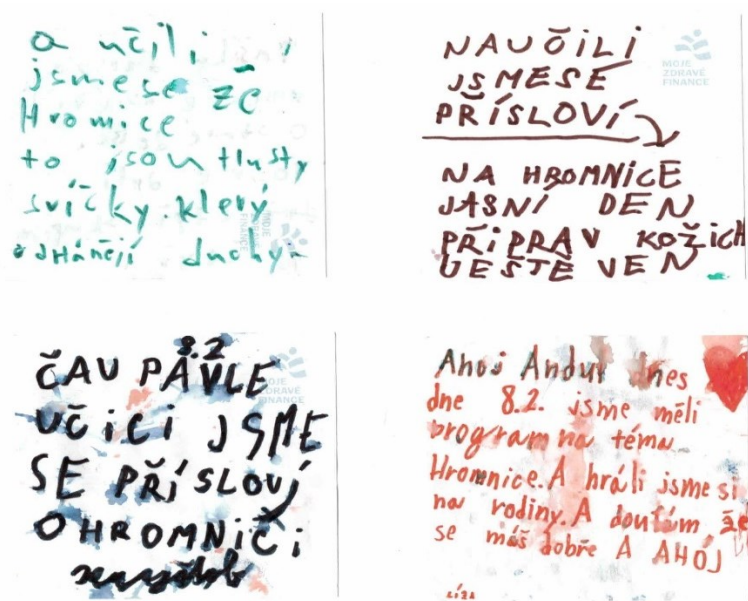 a učili
jsmese žč
Hromice
to jsou tlusty
svíčky.klerý
odHánějí duchy
NAUČILI
JSMESE
PŘÍSLOVÍ
NA HROMNICE
JASNÍ DEN
PŘIPRAV KOŽICH
JEŠTĚ VEN
MOJE
ZDRAVÉ
FINANCE
8.2
ČAU PAVLE
UČiCi JSME
SE PŘÍSLOVÍ
OHROMNIČi
MOJE
ZDRAVÉ
FINANCE
Ahoj dnes
dne 8.2. jsme měli
program na téma
Hromnice.A hráli jsme si
na rodiny.A doufám že
se máš dobře A AHOJ